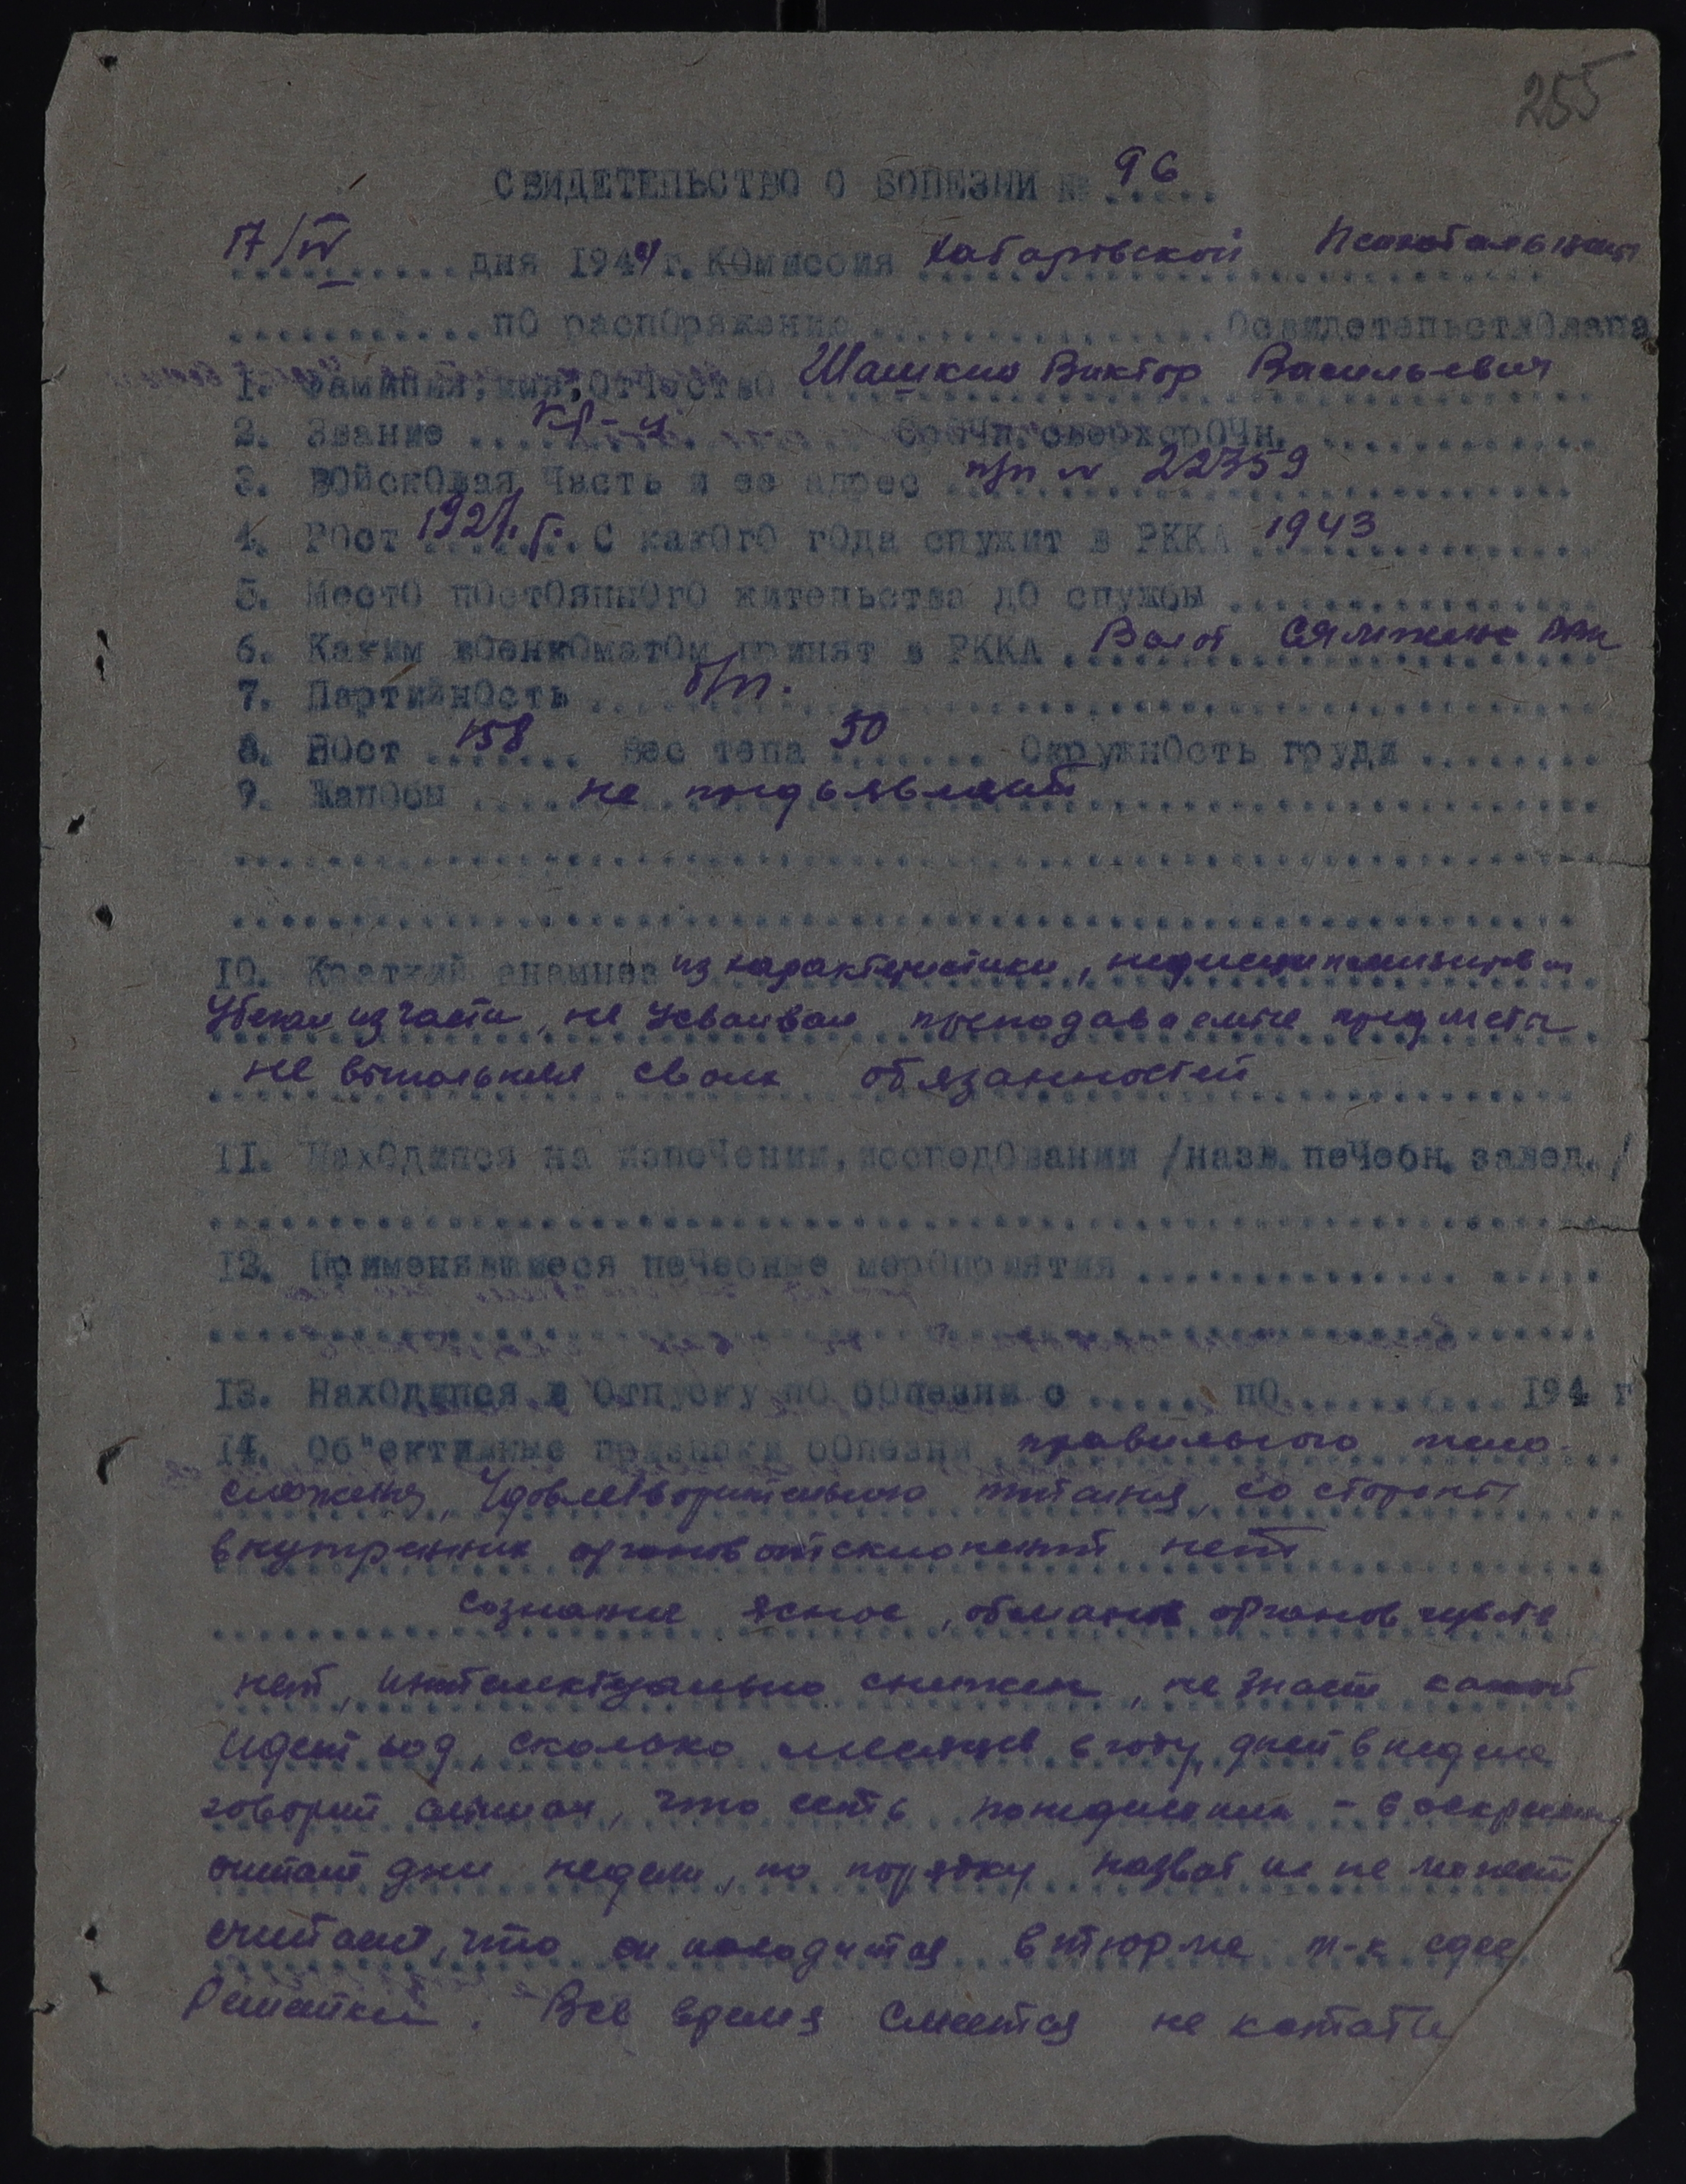 255
СВИДЕТЕЛЬСТВО О БОЛЕЗНИ № 96
17/IV дня 1944 г. Комиссия Хабаровской Психобольницы
по распоряжению Освидетельствовала
1. Фамилия, имя, отчество Шашкин Виктор Васильевич
2. Звание кр-ц Срочн. сверхсрочн.
3. Войсковая часть и ее адрес п/п № 22759
4. Рост 1927 г. С какого года служит в РККА 1943
5. Место постоянного жительства до службы
6. Каким военкоматом принят в РККА Волог
7. Партийность б/п.
8. Рост 158 Вес тела 50 Окружность груди
9. Жалобы не предъявляет
10. Краткий анамнез из характеристики, недисциплинирован
Убегал из части, не усваивал преподаваемые предметы
не выполнял своих обязанностей
11. Находился на излечении, исследовании /назв. лечебн. завед./
12. Применявшиеся лечебные мероприятия
13. Находился в отпуску по болезни с по 194 г
14. Об"ективные признаки болезни правильного тело-
сложения, Удовлетворительного питания, со стороны
внутренних органов отклонений нет
Сознание ясное, обманов органов чувств
нет, интелектуально снижен, не знает какой
идет год, сколько месяцев в году, дней в неделе
говорит, что есть понедельник - воскресенье
дни недели, по порядку назвать их не может
считает, что он находится в тюрме т-к
Решетки. Все время смеется не кстати